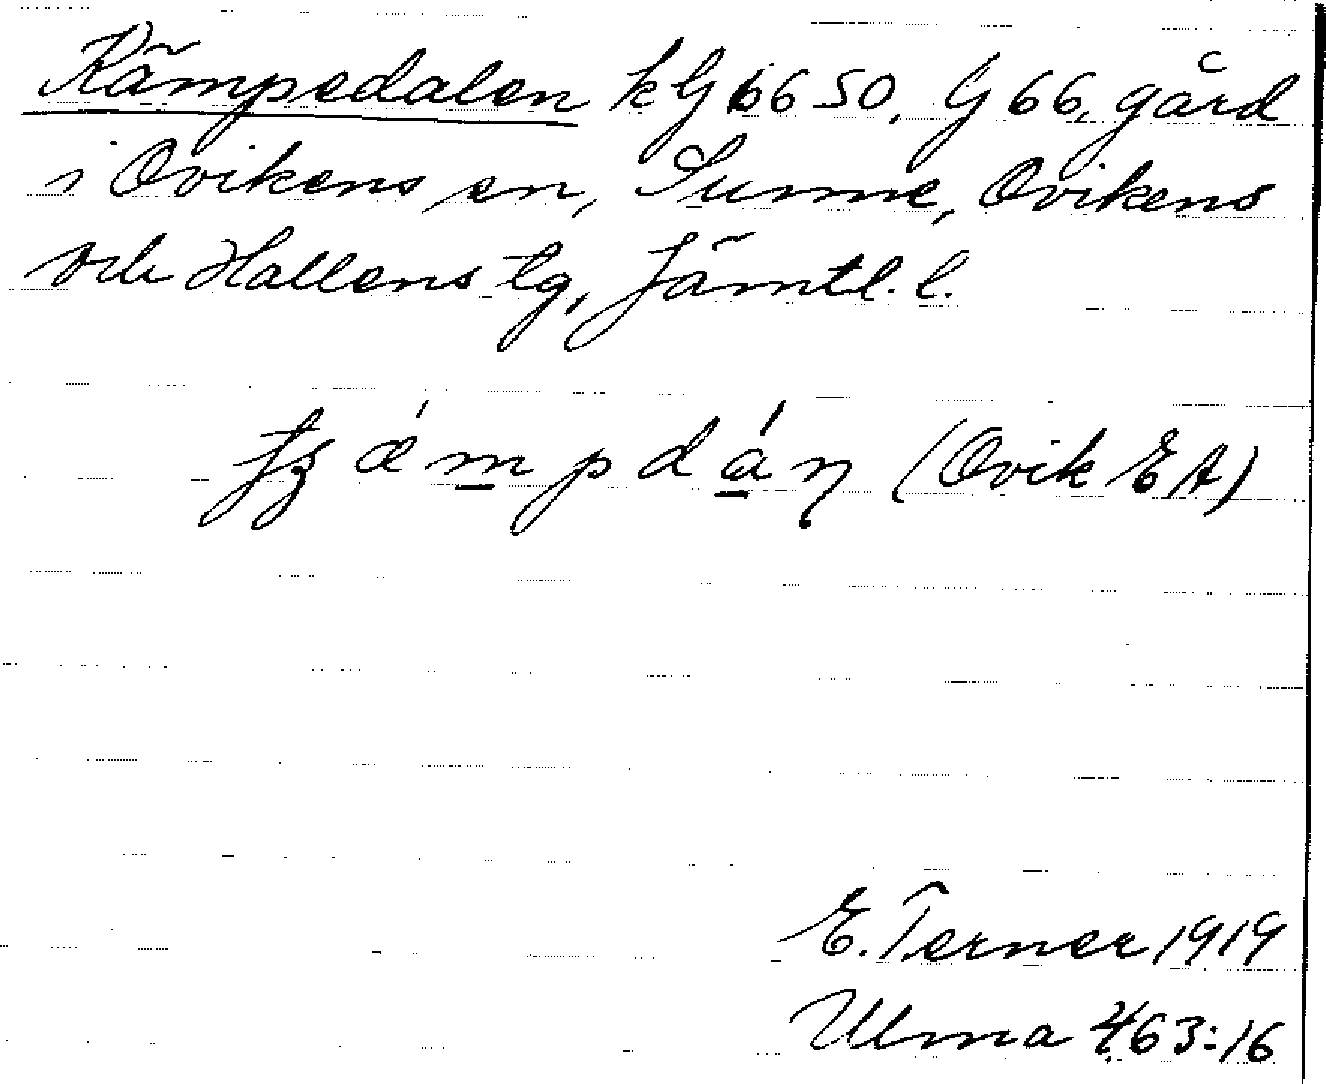 Kämpedalen kG6650, G66, gård
i Ovikens sn, Sunne, Ovikens
och Hallens tg, Jämtl. l.
(Ovik EA)
E. Terner 1919
Ulma 463:16